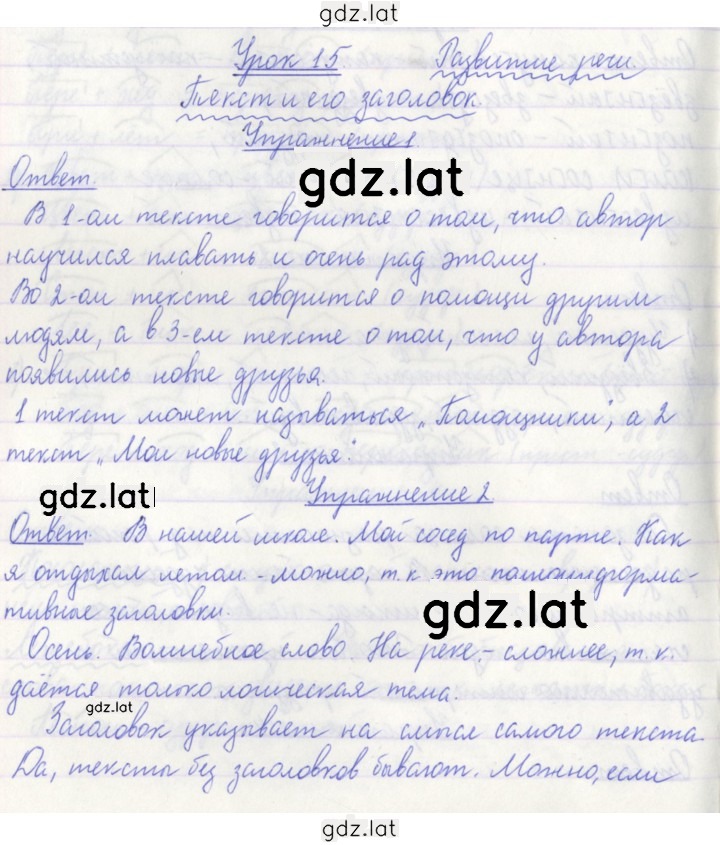 gdz.lat
Урок 15 Развитие речи
Текст и его заголовок
Упражнение 1
Ответ
gdz.lat
В 1-ом тексте говорится о том, что автор
научился плавать и очень рад этому.
Во 2-ом тексте говорится о помощи другим
людям, а в 3-ем тексте о том, что у автора
появились новые друзья.
1 текст может называться „Помощники", а 2
текст „Мои новые друзья".
gdz.lat
Упражнение 2
Ответ. В нашей школе. Мой сосед по парте. Как
я отдыхал летом - можно, т.к это
тивное заголовки.
gdz.lat
Осень. Волшебное слово. На реке, - сложнее, т.к.
даётся только логическая тема.
gdz.lat
Заголовок указывает на смысл самого текста.
Да, тексты без заголовков бывают. Можно, если
gdz.lat